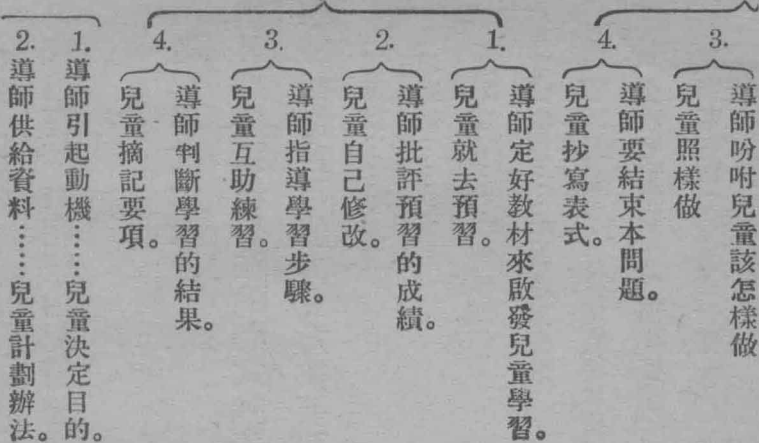 3.
導師吩咐兒童該怎樣做
兒童照樣做
4.
導師要結束本問題。
兒童抄寫表式。
1.
導師定好教材來啟發兒童學習。
兒童就去預習。
2.
導師批評預習的成績。
兒童自己修改。
3.
導師指導學習步驟。
兒童互助練習。
4.
導師判斷學習的結果。
兒童摘記要項。
1.
導師引起動機……兒童決定目的。
2.
導師供給資料……兒童計劃辦法。